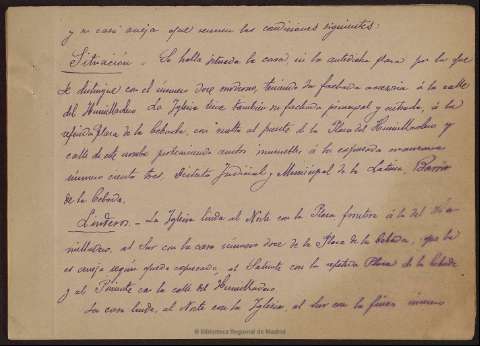 y su casa aneja que reunen las condiciones siguientes:
Situación. Se halla situada la casa, en la antedicha plaza por la que
se distingue con el número doce moderno, teniendo su fachada accesoria á la calle
del Humilladero. La Iglesia tiene tambien su fachada principal y entrada, á la
referida Plaza de la Cebada, con vuelta al presente á la Plaza del Humilladero y
calle de este nombre perteneciendo ambos inmuebles á la expresada manzana
número ciento tres, Distrito Judicial y Municipal de la Latina, Barrio
de la Cebada.
Linderos. - La Iglesia linda al Norte con la Plaza frontera á la del Hu-
milladero, al Sur con la casa número doce de la Plaza de la Cebada, que la
es aneja según queda expresado, al Saliente con la repetida Plaza de la Cebada
y al Poniente con la calle del Humilladero.
La casa linda, al Norte con la Iglesia, al Sur con la finca número
© Biblioteca Regional de Madrid